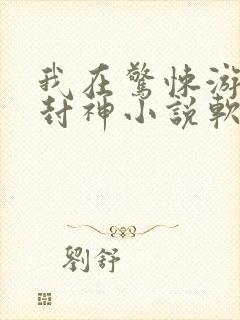 我在驚悚游
封神小說軟
劉舒